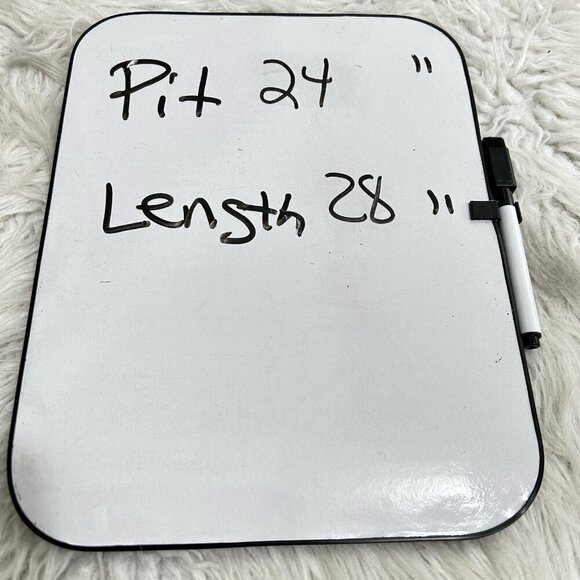 Pit 24 "
Length 28 "